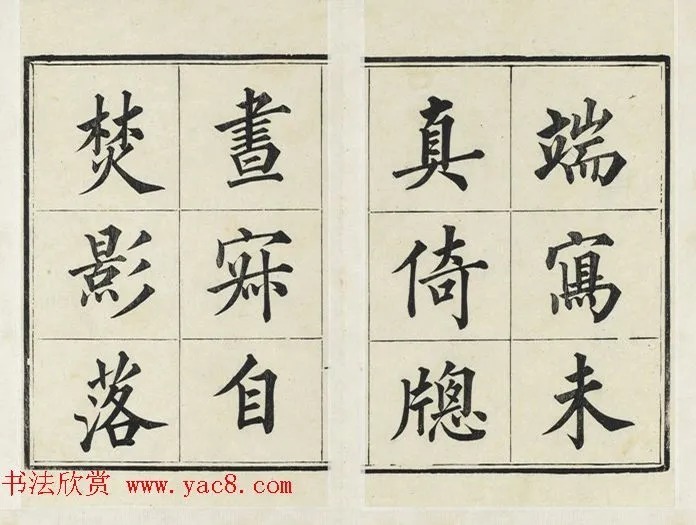 端寫未
真倚牕
晝自
焚影落
书法欣赏 www.yac8.com